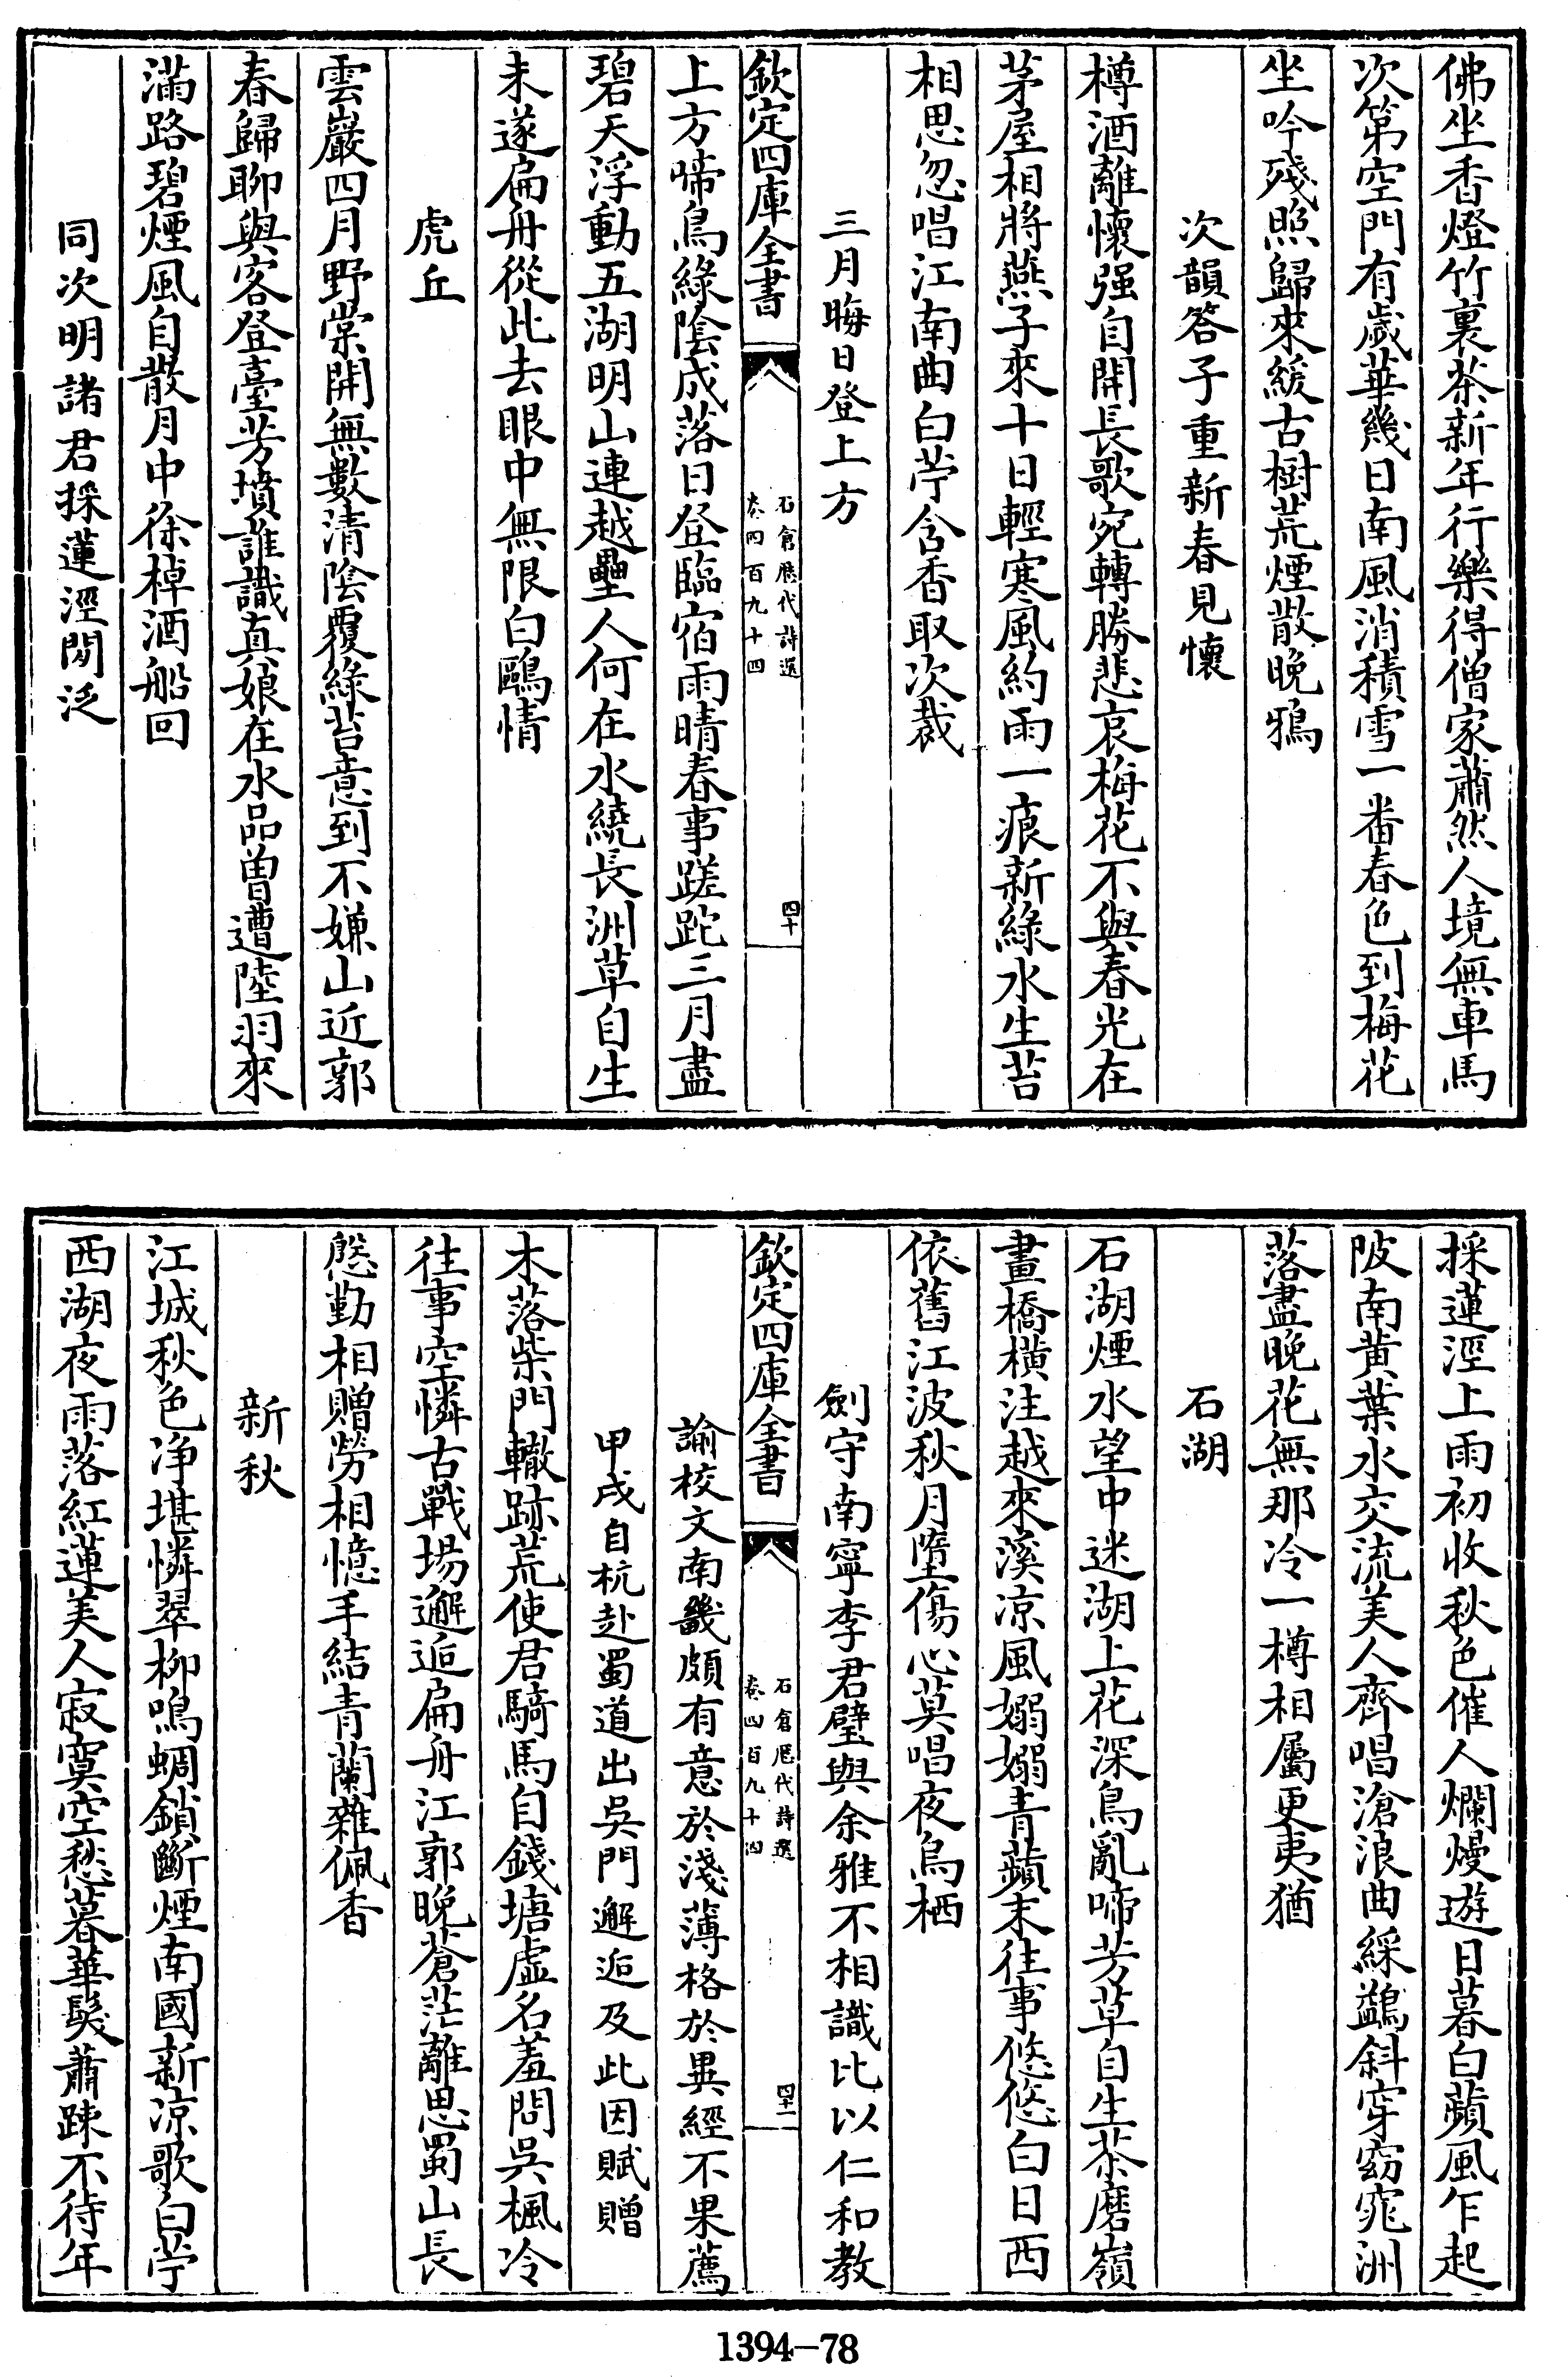 佛坐香燈竹裏茶新年行樂得僧家蕭然人境無車馬
次第空門有歲華幾日南風消積雪一番春色到梅花
坐吟殘照歸來緩古樹荒煙散晚鴉
次韻答子重新春見懷
樽酒離懷强自開長歌宛轉勝悲哀梅花不與春光在
茅屋相將燕子來十日輕寒風約雨一痕新綠水生苔
相思忽唱江南曲白苧含香取次裁
三月晦日登上方
欽定四庫全書
石倉歷代詩選
卷四百九十四
四十
上方啼鳥綠陰成落日登臨宿雨晴春事蹉跎三月盡
碧天浮動五湖明山連越壘人何在水繞長洲草自生
未遂扁舟從此去眼中無限白鷗情
虎丘
雲巖四月野棠開無數清陰覆綠苔意到不嫌山近郭
春歸聊與客登臺芳墳誰識真娘在水品曾遭陸羽來
滿路碧煙風自散月中徐棹酒船回
同次明諸君採蓮涇閒泛
採蓮涇上雨初收秋色催人爛熳遊日暮白蘋風乍起
陂南黄葉水交流美人齊唱滄浪曲綵鷁斜穿窈窕洲
落盡晚花無那冷一樽相屬更夷猶
石湖
石湖煙水望中迷湖上花深鳥亂啼芳草自生茶磨嶺
畫橋橫注越來溪凉風嫋嫋青蘋末往事悠悠白日西
依舊江波秋月墮傷心莫唱夜烏栖
劍守南寧李君璧與余雅不相識比以仁和教
欽定四庫全書
石倉歷代詩選
卷四百九十四
四十一
諭校文南畿頗有意於淺薄格於異經不果薦
甲戌自杭赴蜀道出吳門邂逅及此因賦贈
木落柴門轍跡荒使君騎馬自錢塘虛名羞問吳楓冷
往事空憐古戰場邂逅扁舟江郭晚蒼茫離思蜀山長
慇勤相贈勞相憶手結青蘭雜佩香
新秋
江城秋色净堪憐翠柳鳴蜩鎖斷煙南國新凉歌白苧
西湖夜雨落紅蓮美人寂寞空愁暮華髮蕭疎不待年
1394-78